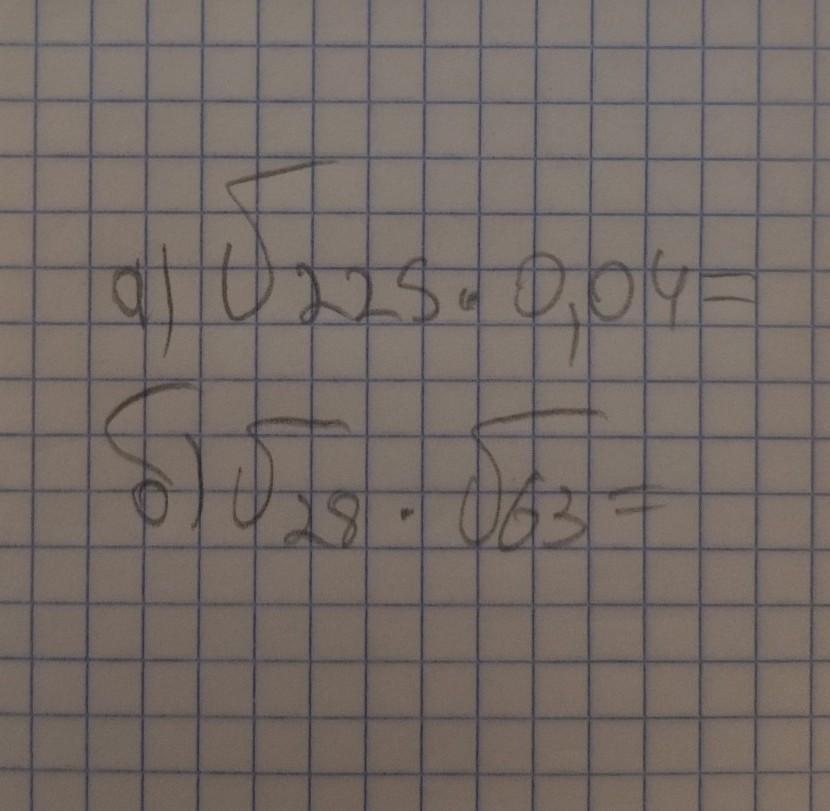 а) √225 · 0,04 =
б) √28 · √63 =